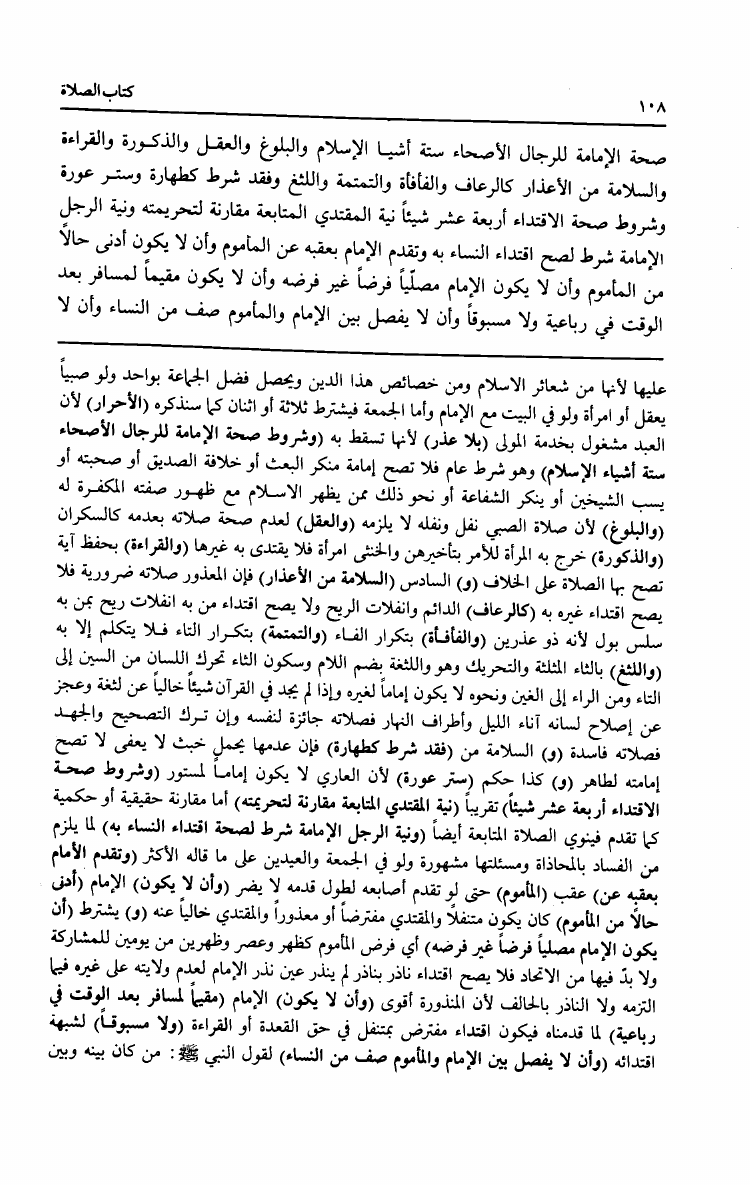 كتاب الصلاة
١٠٨
صحة الإمامة للرجال الأصحاء ستة أشيا الإسلام والبلوغ والعقل والذكورة والقراءة
والسلامة من الأعذار كالرعاف والفأفأة والتمتمة واللثغ وفقد شرط كطهارة وستر عورة
وشروط صحة الاقتداء أربعة عشر شيئاً نية المقتدي المتابعة مقارنة لتحريمته ونية الرجل
الإمامة شرط لصح اقتداء النساء به وتقدم الإمام بعقبه عن المأموم وأن لا يكون أدنى حالاً
من المأموم وأن لا يكون الإمام مصلّياً فرضاً غير فرضه وأن لا يكون مقيماً لمسافر بعد
الوقت في رباعية ولا مسبوقاً وأن لا يفصل بين الإمام والمأموم صف من النساء وأن لا
عليها لأنها من شعائر الاسلام ومن خصائص هذا الدين ويحصل فضل الجماعة بواحد ولو صبياً
يعقل أو امرأة ولو في البيت مع الإمام وأما الجمعة فيشترط ثلاثة أو اثنان كما سنذكره (الأحرار) لأن
العبد مشغول بخدمة المولى (بلا عذر) لأنها تسقط به (وشروط صحة الإمامة للرجال الأصحاء
ستة أشياء الإسلام) وهو شرط عام فلا تصح إمامة منكر البعث أو خلافة الصديق أو صحبته أو
يسب الشيخين أو ينكر الشفاعة أو نحو ذلك ممن يظهر الاسلام مع ظهور صفته المكفرة له
(والبلوغ) لأن صلاة الصبي نفل ونفله لا يلزمه (والعقل) لعدم صحة صلاته بعدمه كالسكران
(والذكورة) خرج به المرأة للأمر بتأخيرهن والخنثى امرأة فلا يقتدى به غيرها (والقراءة) بحفظ آية
تصح بها الصلاة على الخلاف (و) السادس (السلامة من الأعذار) فإن المعذور صلاته ضرورية فلا
يصح اقتداء غيره به (كالرعاف) الدائم وانفلات الريح ولا يصح اقتداء من به انفلات ريح بمن به
سلس بول لأنه ذو عذرين (والفأفأة) بتكرار الفاء (والتمتمة) بتكرار التاء فلا يتكلم إلا به
(واللثغ) بالثاء المثلثة والتحريك وهو واللثغة بضم اللام وسكون الثاء تحرك اللسان من السين إلى
الثاء ومن الراء إلى الغين ونحوه لا يكون إماماً لغيره وإذا لم يجد في القرآن شيئاً خالياً عن لثغة وعجز
عن إصلاح لسانه آناء الليل وأطراف النهار فصلاته جائزة لنفسه وإن ترك التصحيح والجهد
فصلاته فاسدة (و) السلامة من (فقد شرط كطهارة) فإن عدمها يحمل خبث لا يعفى لا تصح
إمامته لطاهر (و) كذا حكم (ستر عورة) لأن العاري لا يكون إماماً لمستور (وشروط صحة
الاقتداء أربعة عشر شيئاً) تقريباً (نية المقتدي المتابعة مقارنة لتحريمته) أما مقارنة حقيقية أو حكمية
كما تقدم فينوي الصلاة المتابعة أيضاً (ونية الرجل الإمامة شرط لصحة اقتداء النساء به) لما يلزم
من الفساد بالمحاذاة ومسئلتها مشهورة ولو في الجمعة والعيدين على ما قاله الأكثر (وتقدم الأمام
بعقبه عن) عقب (المأموم) حتى لو تقدم أصابعه لطول قدمه لا يضر (وأن لا يكون) الإمام (أدنى
حالاً من المأموم) كان يكون متنفلاً والمقتدي مفترضاً أو معذوراً والمقتدي خالياً عنه (و) يشترط (أن
يكون الإمام مصلياً فرضاً غير فرضه) أي فرض المأموم كظهر وعصر وظهرين من يومين للمشاركة
ولا بدّ فيها من الاتحاد فلا يصح اقتداء ناذر بناذر لم ينذر عين نذر الإمام لعدم ولايته على غيره فيما
التزمه ولا الناذر بالحالف لأن المنذورة أقوى (وأن لا يكون) الإمام (مقيماً لمسافر بعد الوقت في
رباعية) لما قدمناه فيكون اقتداء مفترض بمتنفل في حق القعدة أو القراءة (ولا مسبوقاً) لشبهة
اقتدائه (وأن لا يفصل بين الإمام والمأموم صف من النساء) لقول النبي ﷺ: من كان بينه وبين